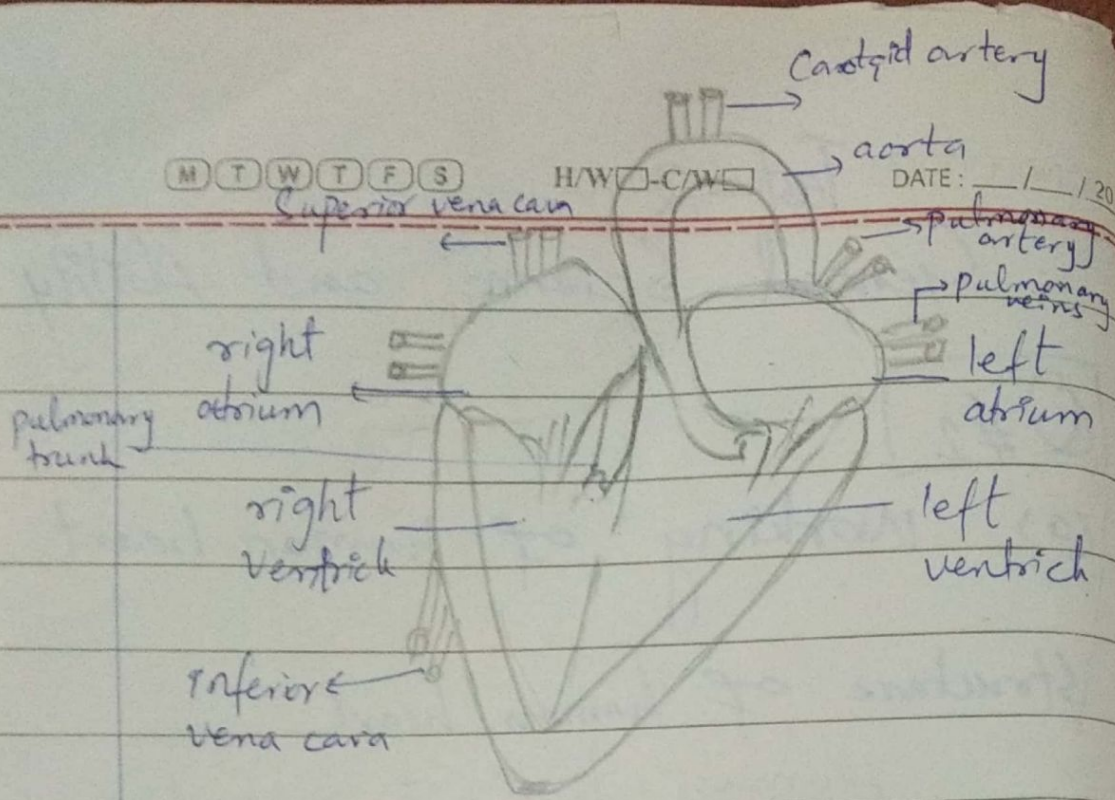 Carotid artery
aorta
M T W T F S
H/W -C/W
DATE: __/__/20
Superior vena cava
pulmonary
artery
pulmonary
veins
right
atrium
left
atrium
pulmonary
trunk
right
ventrick
left
ventrich
Inferior
vena cava